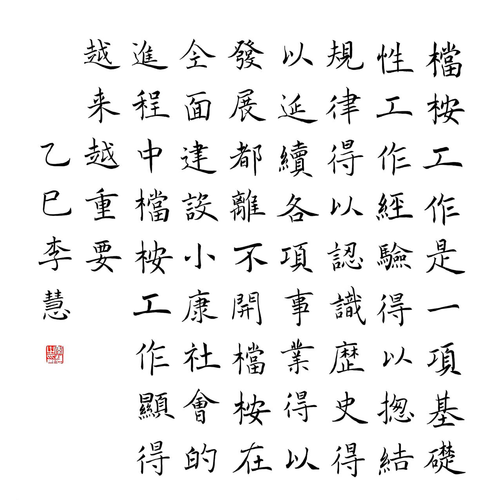 檔桉工作是一項基礎
性工作經驗得以揔結
規律得以認識歷史得
以延續各項事業得以
發展都離不開檔桉在
全面建設小康社會的
進程中檔桉工作顯得
越来越重要
乙巳李慧